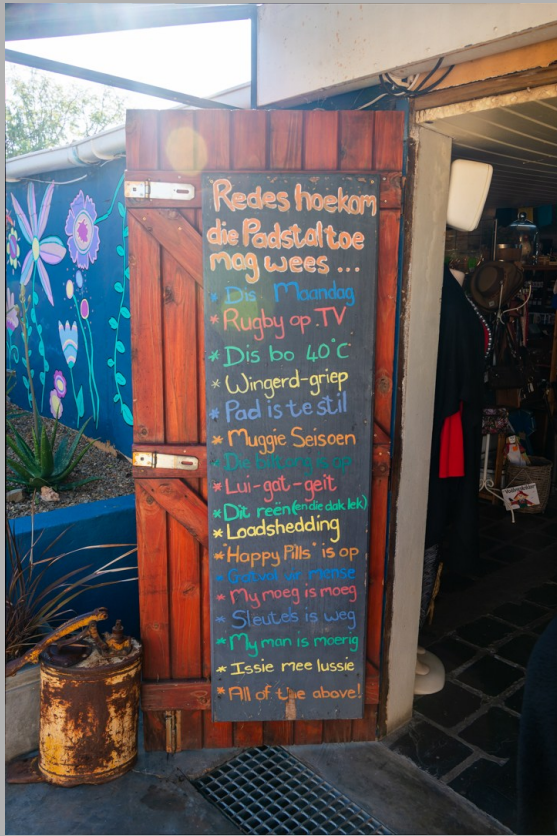 Redes hoekom
die Padstal toe
mag wees ...
* Dis Maandag
* Rugby op TV
* Dis bo 40°C
* Wingerd-griep
* Pad is te stil
* Muggie Seisoen
* Die biltong is op
* Lui-gat-geit
* Dit reën (en die dak lek)
* Loadshedding
* "Happy Pills" is op
* Gatvol vir mense
* My moeg is moeg
* Sleutels is weg
* My man is moerig
* Issie mee lussie
* All of the above!